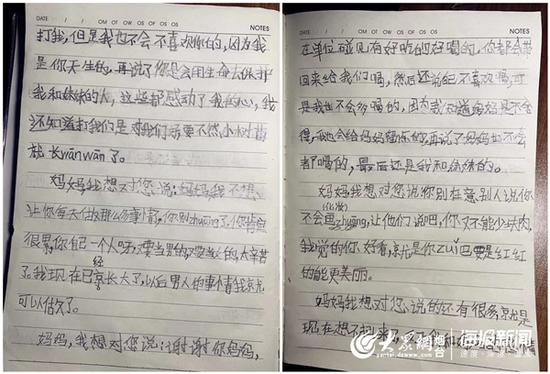 DATE
NOTES
打我,但是我也不会不喜欢你的,因为我
是你天生的,再说了你是会用生命去保护
我和妹妹的人,这些都感动了我的心,我
还知道打我们是对我们
就长wānwān了。
妈妈我想对您说:妈妈我不想
让你每天做那么多事情,你别zhuāng了,你肯定
很累,你自己一个人呀,要当男的要当女的太辛苦
了。我现在已经长大了,以后男人的事情我就
可以做了。
妈妈,我想对您说:谢谢你妈妈,
DATE
NOTES
在单位碰见有好吃的好喝的,你都会带
回来给我们喝,然后还说自己不喜欢喝,可
是我也不会多喝的,因为我知道妈妈是不舍
得,我也会给妈妈留你的再说了妈妈也不会
都喝的,最后还是我和妹妹的。
妈妈我想对您说你别在意别人说你
(化妆)
不会
让他们说吧,你又不能少块肉,
我觉的你好看,就是你zuǐ巴要是红红
的能更美丽。
妈妈我想对您说的还有很多,就是
现在想不起来了
大众网 海报新闻